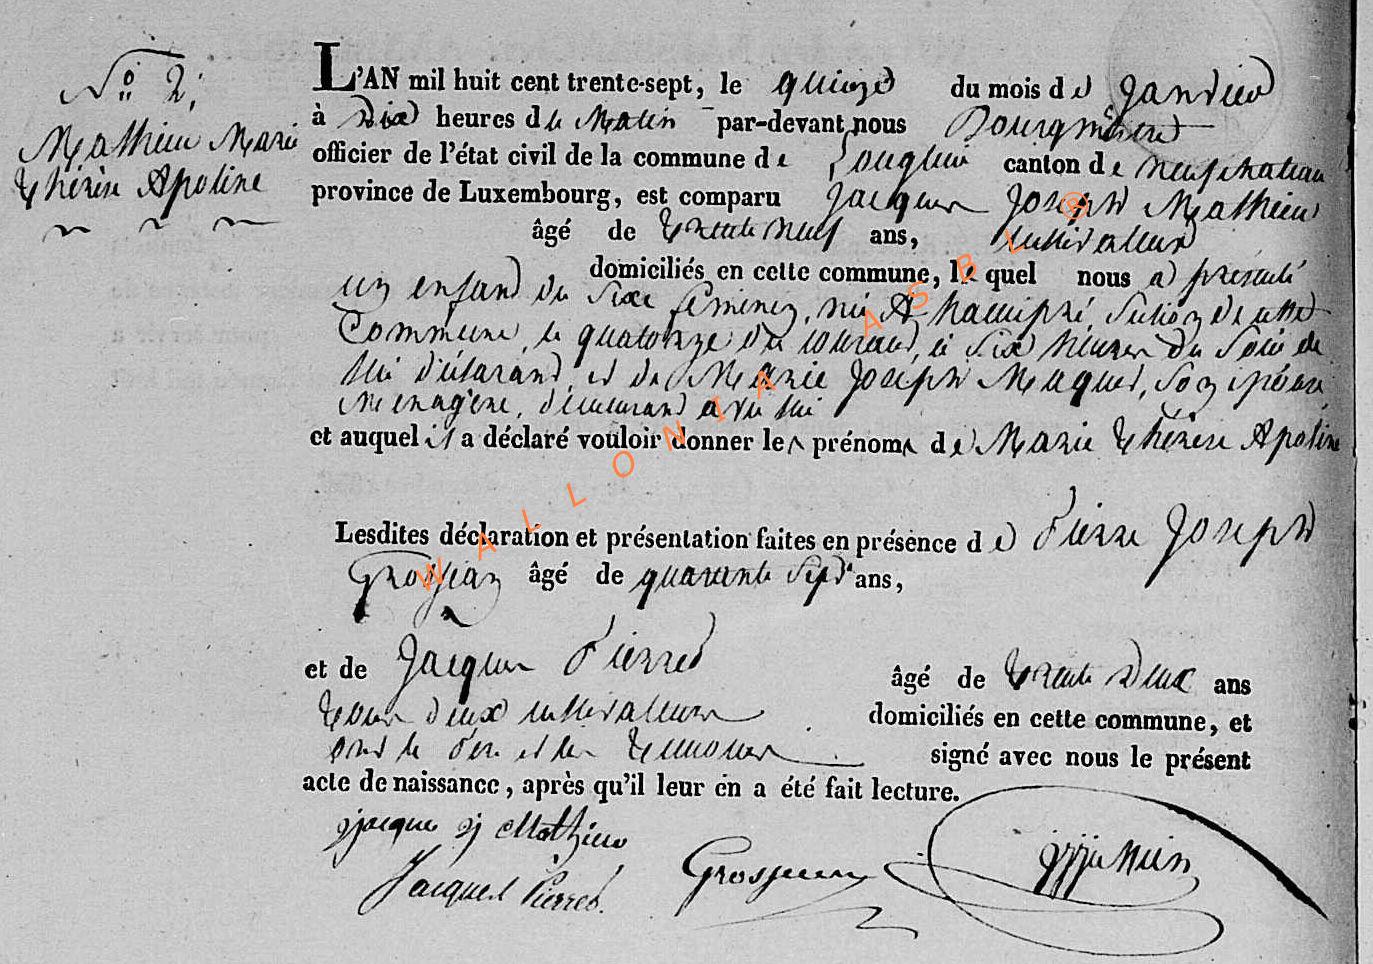 No 2.
Mathieu Marie
thérèse Apoline
L'AN mil huit cent trente-sept, le quinze du mois de Janvier
à Dix heures du Matin par-devant nous Bourgmestre
officier de l'état civil de la commune de Longlier canton de neufchateau
province de Luxembourg, est comparu Jacques Joseph Mathieu
âgé de trente neuf ans, cultivateur
domiciliés en cette commune, lequel nous a présenté
un enfant du sexe féminin, né A hamipré, section de cette
Commune, le quatorze du courant, à six heures du soir de
lui déclarant, et de Marie Joseph Maquet, son épouse
ménagère, demeurant avec lui
et auquel il a déclaré vouloir donner les prénoms de Marie thérèse Apoline
Lesdites déclaration et présentation faites en présence de Pierre Joseph
Grosjean âgé de quarante sept ans,
et de Jacques Pierret âgé de trente Deux ans
tous deux cultivateurs domiciliés en cette commune, et
ont le Père et les témoins signé avec nous le présent
acte de naissance, après qu'il leur en a été fait lecture.
jacque j Mathieu
Jacques Pierret
Grosjean
WALLONIA ASBL ®